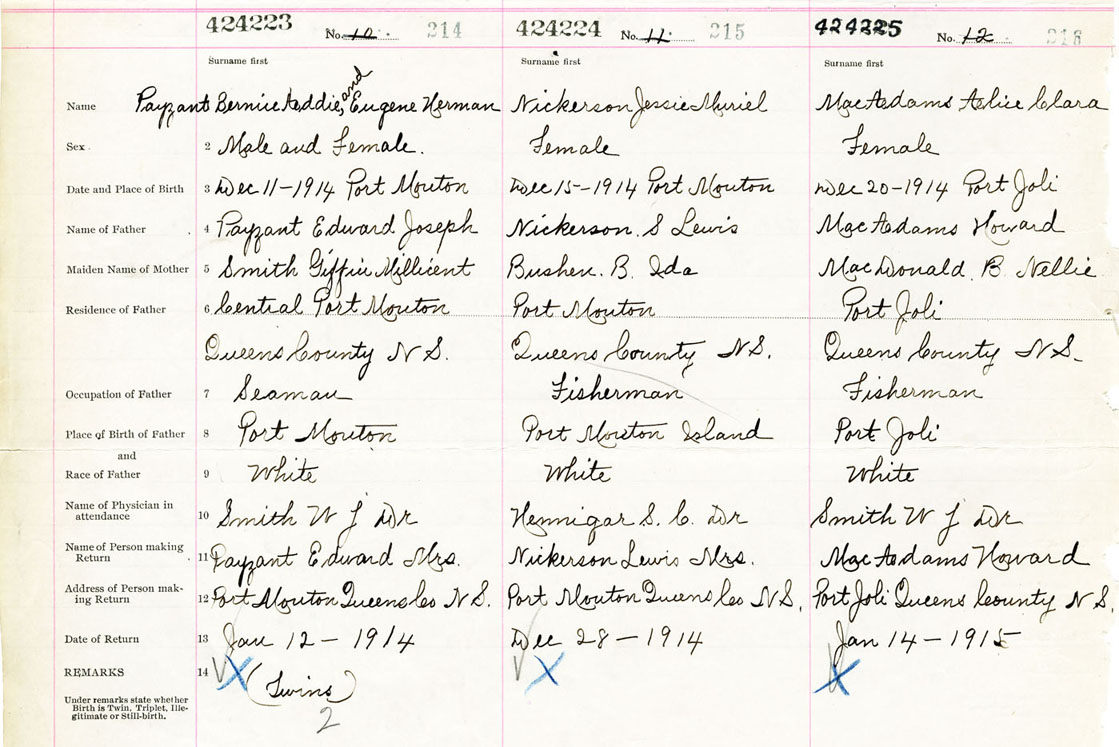 424223 No. 10 214 424224 No. 11 215 424225 No. 12 216
Surname first Surname first Surname first
Name Payzant Bernice Addie, and Eugene Herman Nickerson Jessie Muriel MacAdams Alice Clara
Sex 2 Male and Female. Female Female
Date and Place of Birth 3 Dec 11-1914 Port Mouton Dec 15-1914 Port Mouton Dec 20-1914 Port Joli
Name of Father 4 Payzant Edward Joseph Nickerson. S Lewis MacAdams Howard
Maiden Name of Mother 5 Smith Giffin Millicent Bushen. B. Ida MacDonald. B Nellie
Residence of Father 6 Central Port Mouton Port Mouton Port Joli
Queens County N S. Queens County N S. Queens County N S
Occupation of Father 7 Seaman Fisherman Fisherman
Place of Birth of Father 8 Port Mouton Port Mouton Island Port Joli
and
Race of Father 9 White White White
Name of Physician in
attendance 10 Smith W J Dr Hennigar S. C. Dr Smith W J Dr
Name of Person making
Return 11 Payzant Edward Mrs. Nickerson Lewis Mrs. MacAdams Howard
Address of Person mak-
ing Return 12 Port Mouton Queens Co N S. Port Mouton Queens Co N S. Port Joli Queens County N S.
Date of Return 13 Jan 12 - 1914 Dec 28 - 1914 Jan 14 - 1915
REMARKS 14 (Twins)
Under remarks state whether
Birth is Twin, Triplet, Ille-
gitimate or Still-birth.
2